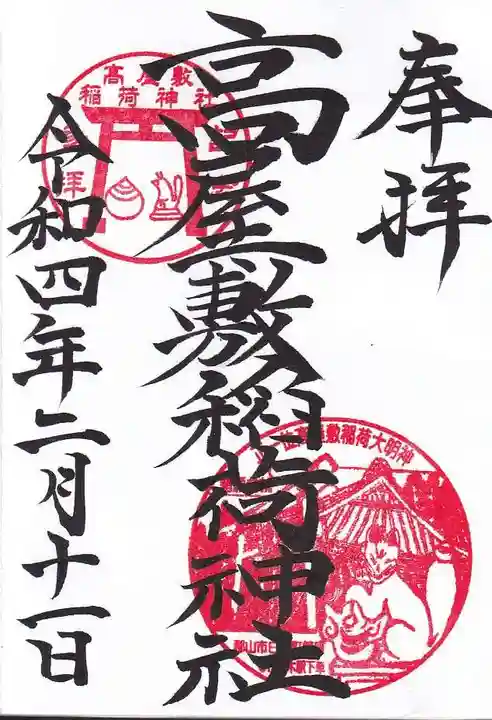 奉拝
高屋敷稲荷神社
令和四年二月十一日
高屋敷
稲荷神社
敷稲荷大明神
郡山市